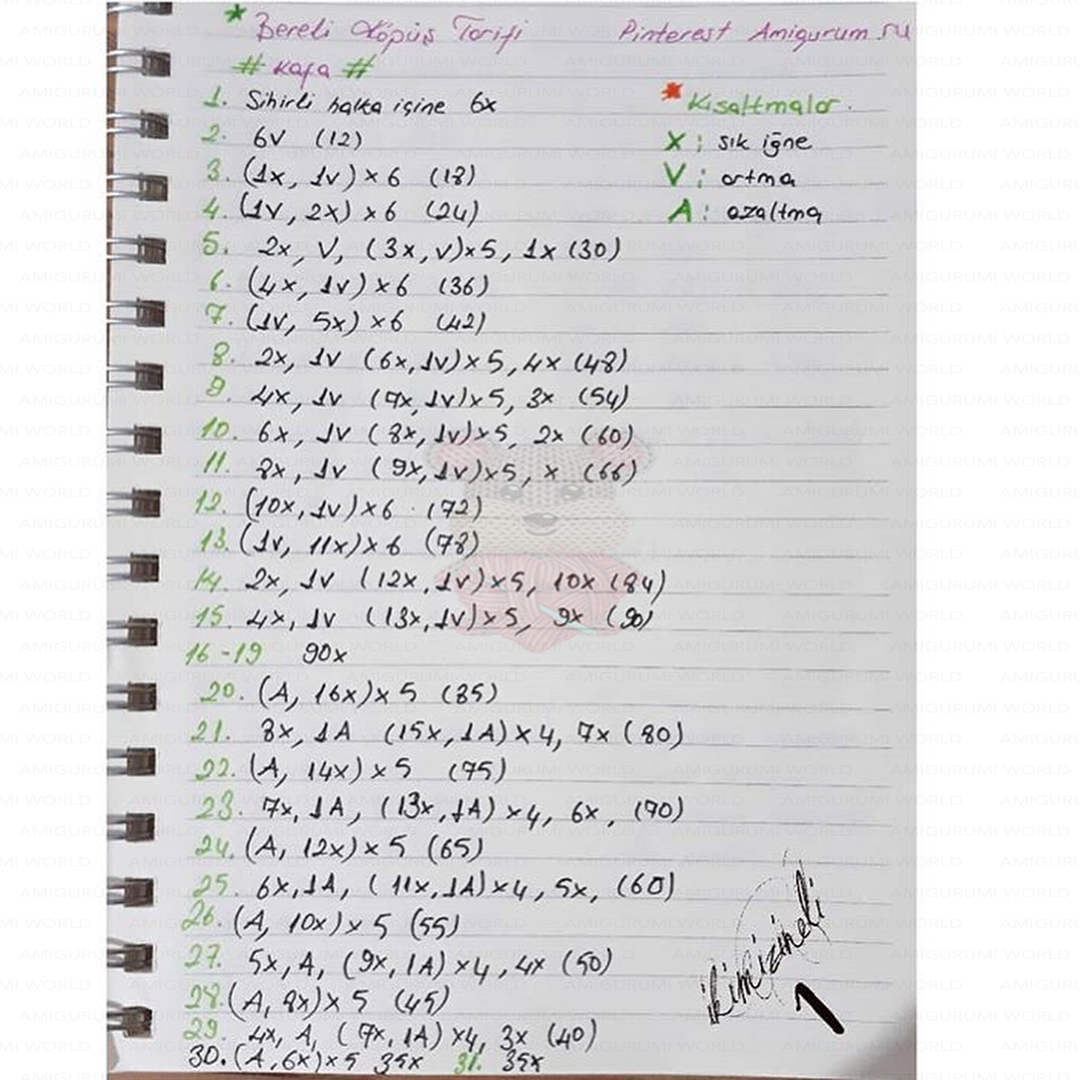 * Bereli Köpüş Tarifi Pinterest Amigurum.ru
# Kafa #
* Kısaltmalar.
X : sık iğne
V : artma
A : azaltma
1. Sihirli halka içine 6x
2. 6V (12)
3. (1x, 1v) x 6 (18)
4. (1V, 2x) x 6 (24)
5. 2x, V, (3x, v)x5, 1x (30)
6. (4x, 1v) x6 (36)
7. (1v, 5x) x6 (42)
8. 2x, 1v (6x, 1v)x5, 4x (48)
9. 4x, 1v (7x, 1v)x5, 3x (54)
10. 6x, 1v (8x, 1v)x5, 2x (60)
11. 8x, 1v (9x, 1v)x5, x (66)
12. (10x, 1v)x6 (72)
13. (1v, 11x)x6 (78)
14. 2x, 1v (12x, 1v)x5, 10x (84)
15. 4x, 1v (13x, 1v)x5, 9x (90)
16-19 90x
20. (A, 16x)x5 (85)
21. 8x, 1A (15x, 1A)x4, 7x (80)
22. (A, 14x)x5 (75)
23. 7x, 1A, (13x, 1A)x4, 6x, (70)
24. (A, 12x)x5 (65)
25. 6x, 1A, (11x, 1A)x4, 5x, (60)
26. (A, 10x)x5 (55)
27. 5x, A, (9x, 1A)x4, 4x (50)
28. (A, 8x)x5 (45)
29. 4x, A, (7x, 1A)x4, 3x (40)
30. (A, 6x)x5 35x 31. 35x
1
AMIGURUMI WORLD